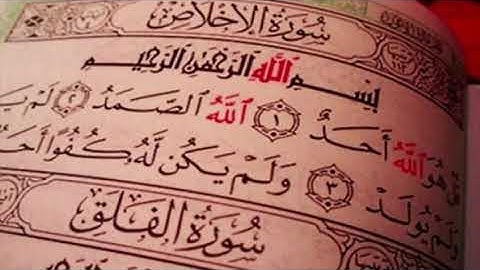 سُورَةُ الإِخْلَاصِ
بِسْمِ اللَّهِ الرَّحْمَٰنِ الرَّحِيمِ
هُوَ اللَّهُ أَحَدٌ ١ اللَّهُ الصَّمَدُ ٢ لَمْ يَ
وَلَمْ يُولَدْ ٣ وَلَمْ يَكُن لَّهُ كُفُوًا أَحَ
سُورَةُ الْفَلَقِ